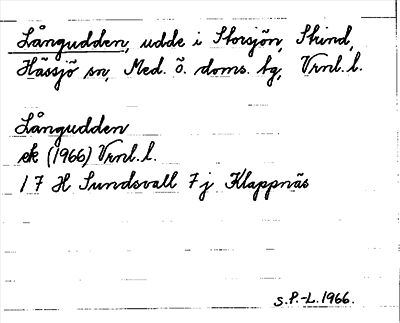 Långudden, udde i Storsjön, Skind,
Hässjö sn, Med. ö. doms. tg, Vrnl. l.
Långudden
ek (1966) Vrnl. l.
17 H Sundsvall 7 j Klappnäs
S.P.-L. 1966.